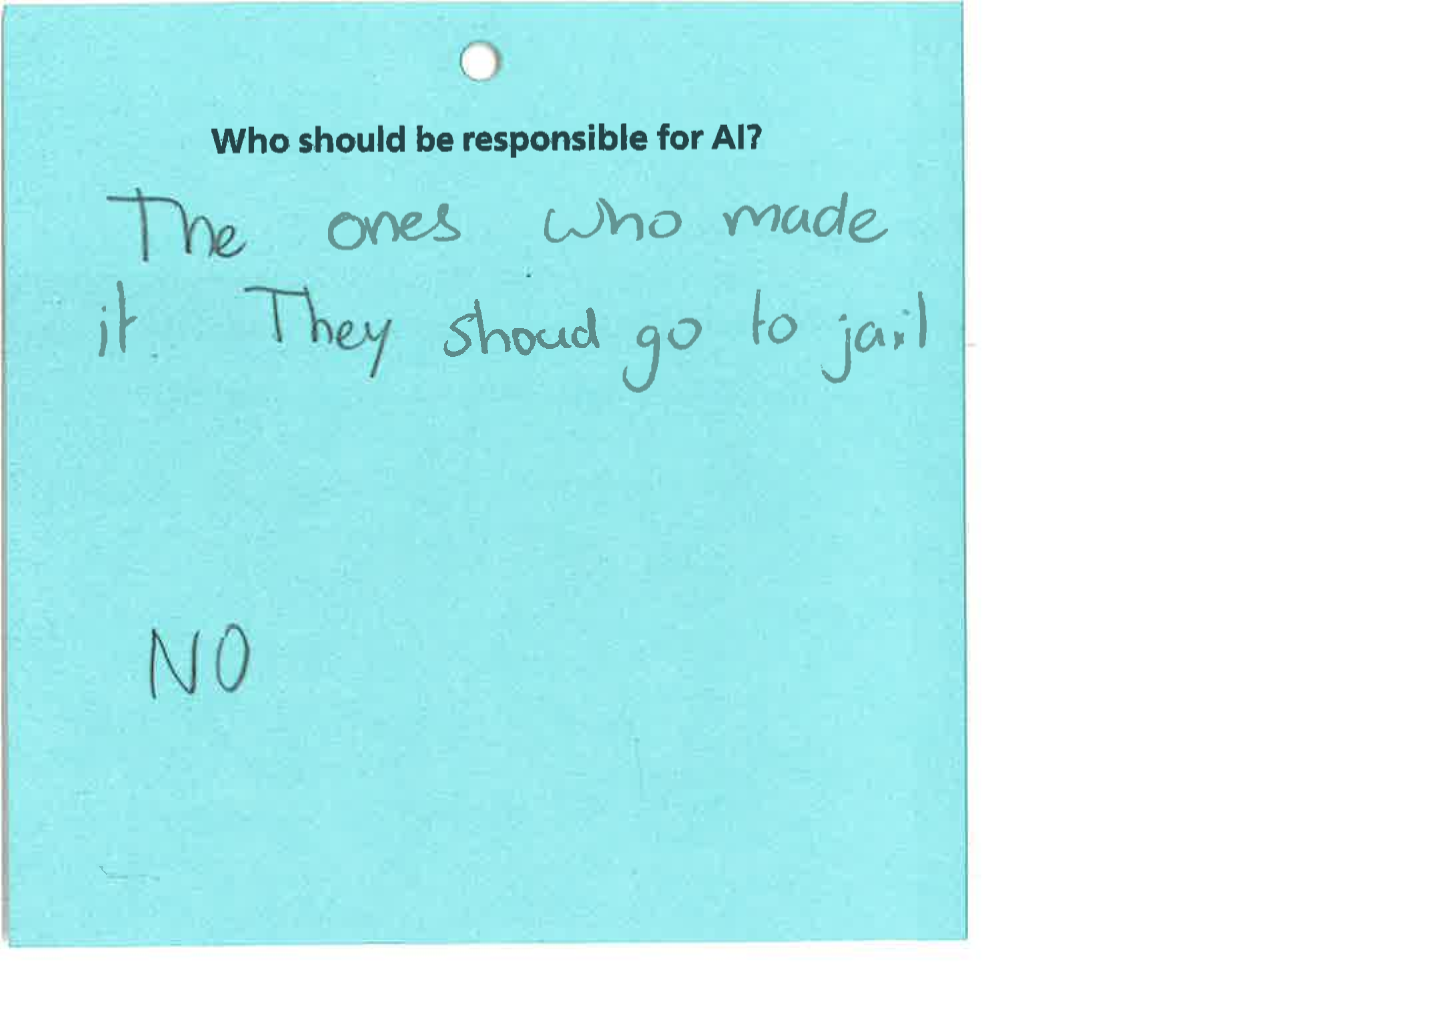 Who should be responsible for AI?
The ones who made
it They shoud go to jail
NO